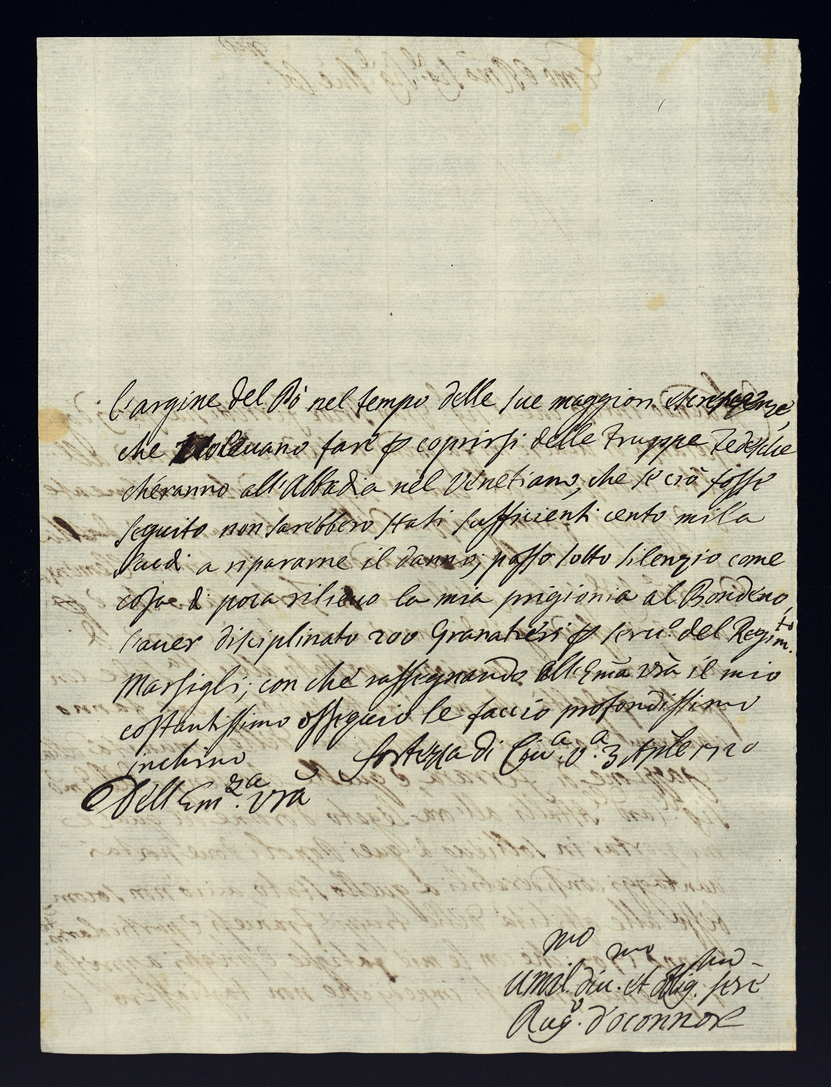 l'argine del Pò nel tempo delle sue maggiori
che volevano fare p coprirsi delle Truppe Tedesche
ch'eranno all'Abbadia nel Venetiano, che se ciò fosse
seguito non sarebbero stati sufficienti cento mila
scudi a ripararne il danno; passo sotto silenzio come
cosa di poca rilievo la mia prigionia al Bondeno,
l'aver disciplinato 200 Granatieri p seru.o del Regim.to
Marsigli; con che rassegnando all'Emã Vrã il mio
costantissimo ossequio le faccio profondissimo
inchino Fortezza di Ciu.a V.a 3 Aple 1720
Dell'Em.za Vrã
Umil.mo diu.mo et Oblig.mo serẽ
Rug.o d'oconnor